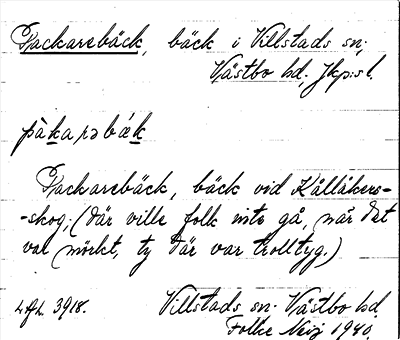 Packarebäck, bäck i Villstads sn;
Västbo hd, Jkp:s l.
pàkarəbǽk
Packarebäck, bäck vid Källåkers-
-skog, (där ville folk inte gå, när det
var mörkt, ty där var trolltyg.)
3918. Villstads sn. Västbo hd.
Folke 1940.